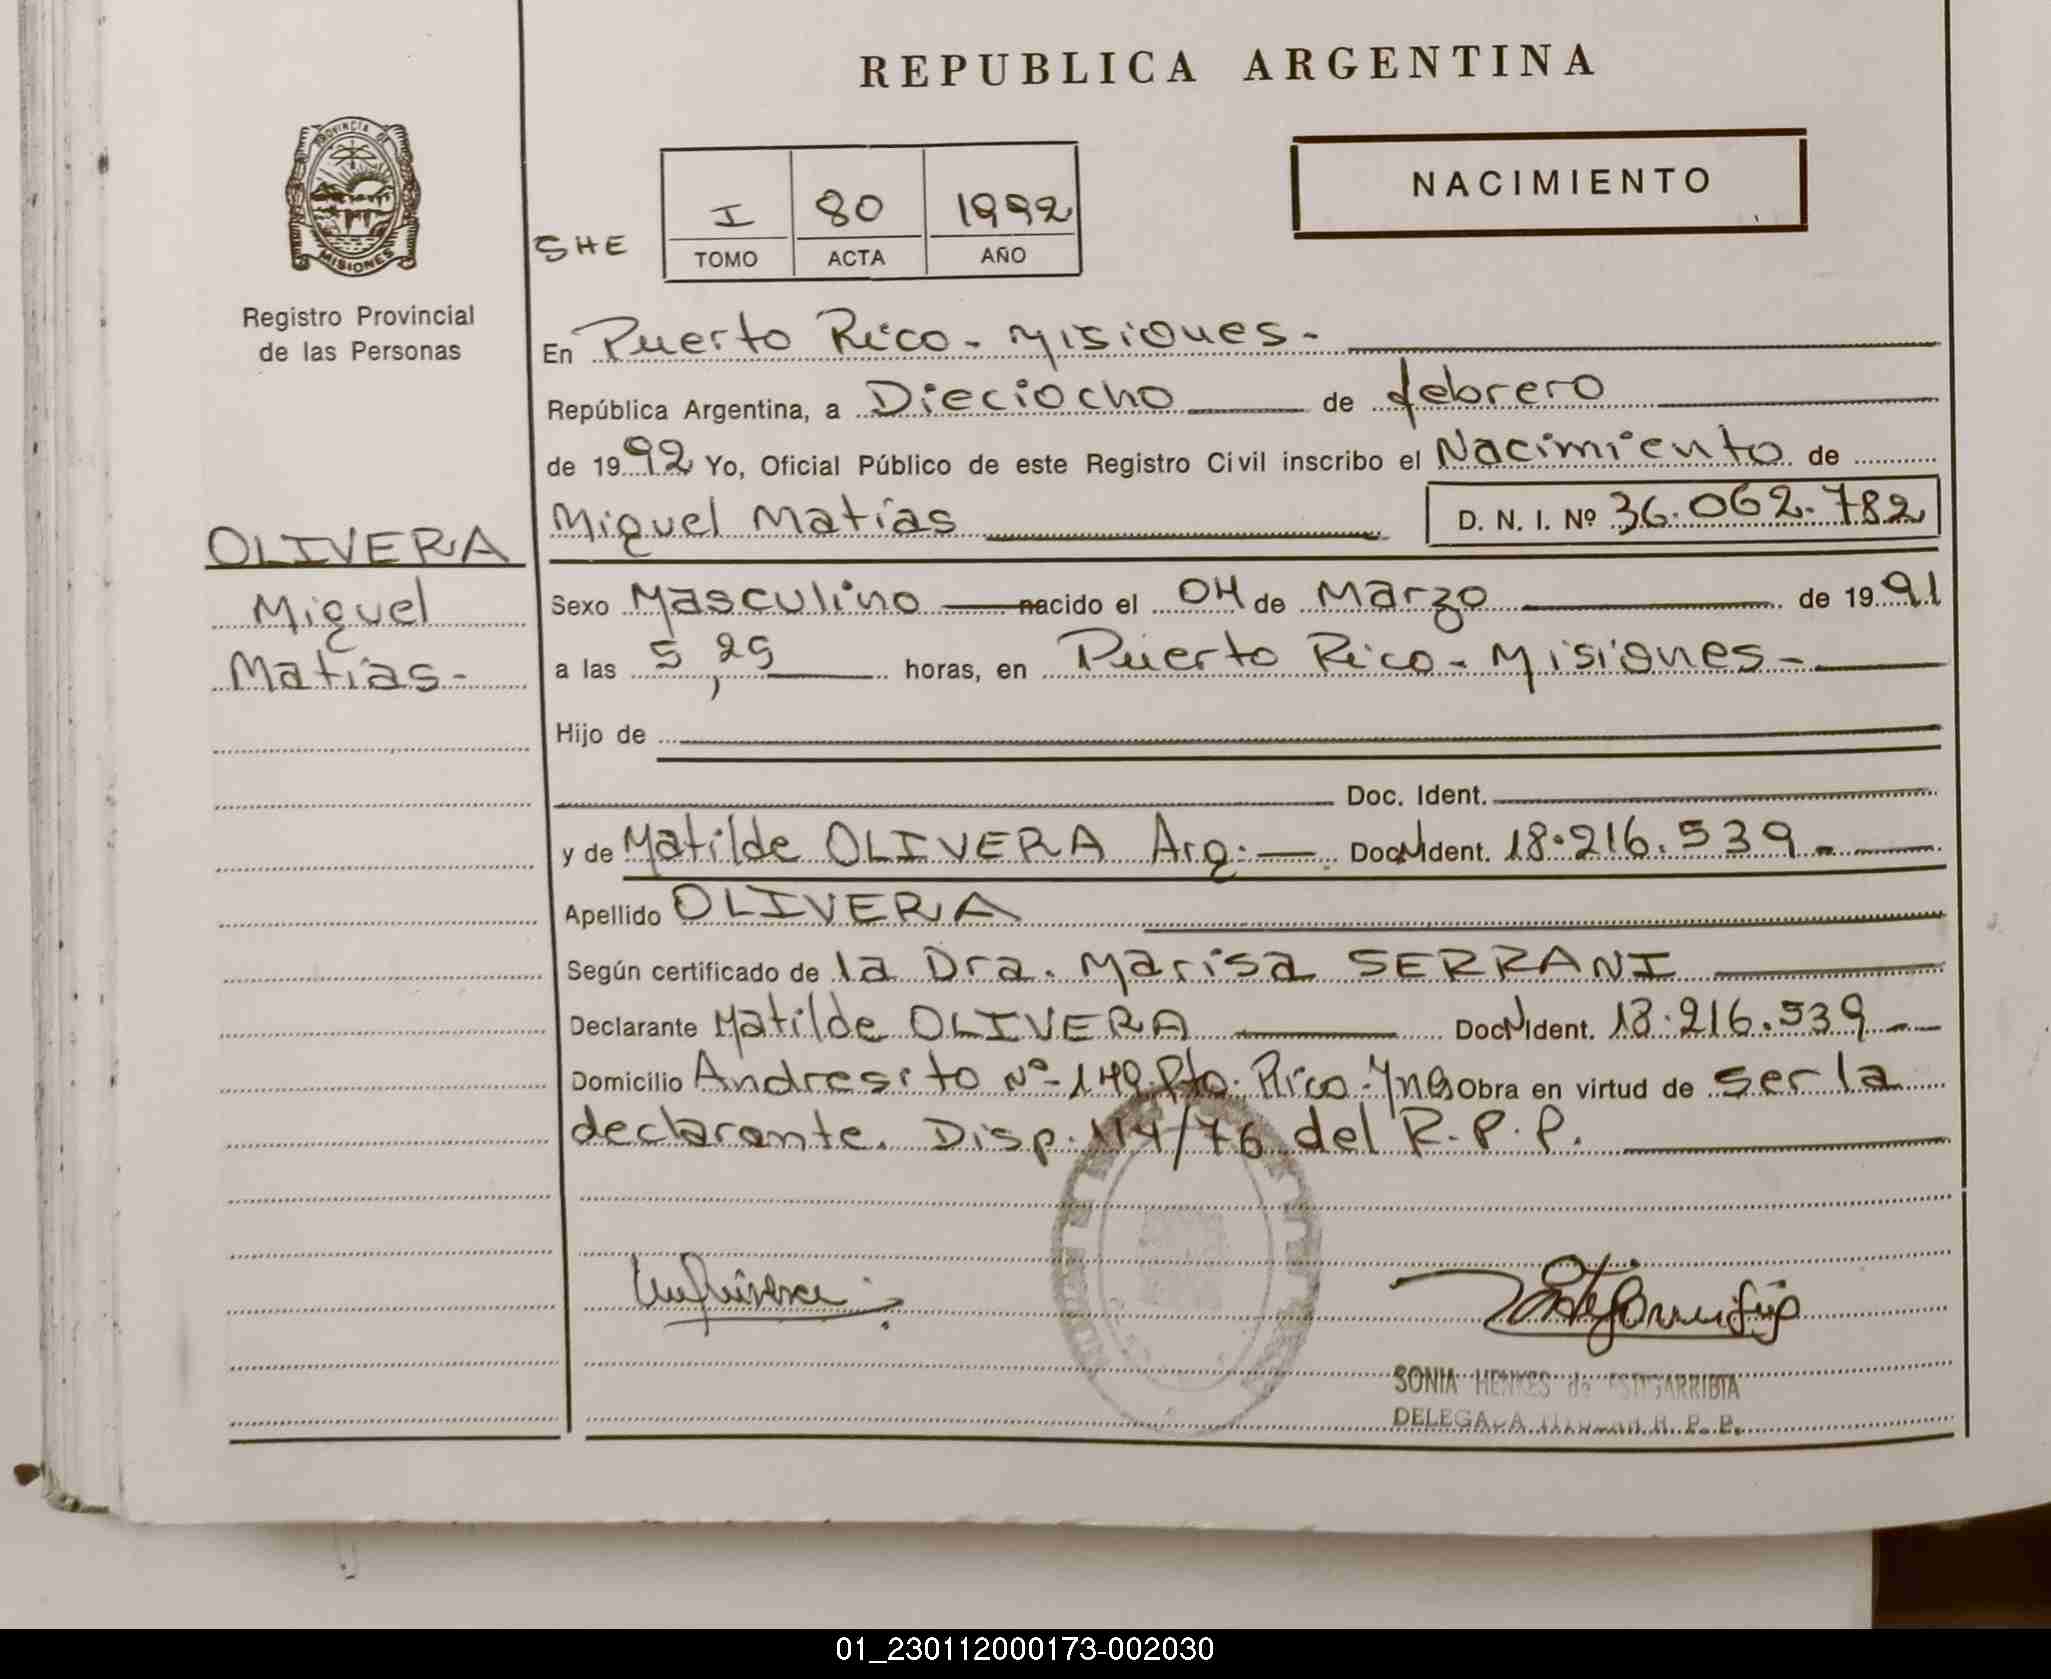 REPUBLICA ARGENTINA
PROVINCIA DE MISIONES
Registro Provincial
de las Personas
SHE
I 80 1992
TOMO ACTA AÑO
NACIMIENTO
En Puerto Rico - Misiones -
República Argentina, a Dieciocho de febrero
de 1992 Yo, Oficial Público de este Registro Civil inscribo el Nacimiento de
Miguel Matías D. N. I. Nº 36.062.782
OLIVERA
Miguel
Matías -
Sexo Masculino nacido el 04 de Marzo de 1991
a las 5,25 horas, en Puerto Rico - Misiones -
Hijo de
Doc. Ident.
y de Matilde OLIVERA Arg. Doc. Ident. 18.216.539 -
Apellido OLIVERA
Según certificado de la Dra. Marisa SERRANI
Declarante Matilde OLIVERA Doc. Ident. 18.216.539 -
Domicilio Andresito Nº 140 Pto. Rico - Mnes Obra en virtud de ser la
declarante. Disp. 114/76 del R.P.P.
SONIA HENKES de ESTIGARRIBIA
DELEGADA TITULAR R. P. P.
01_230112000173-002030